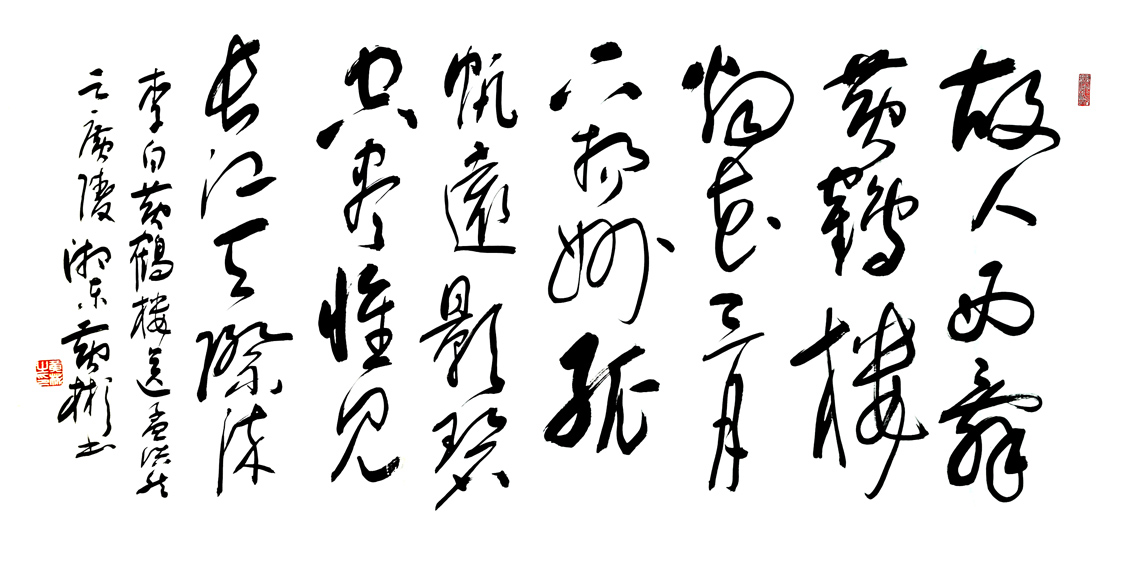 故人西辭
黄鶴樓
烟花三月
下揚州孤
帆遠影碧
空盡惟見
長江天際流
李白黄鶴樓送孟浩然
之廣陵 湘東黄彬書